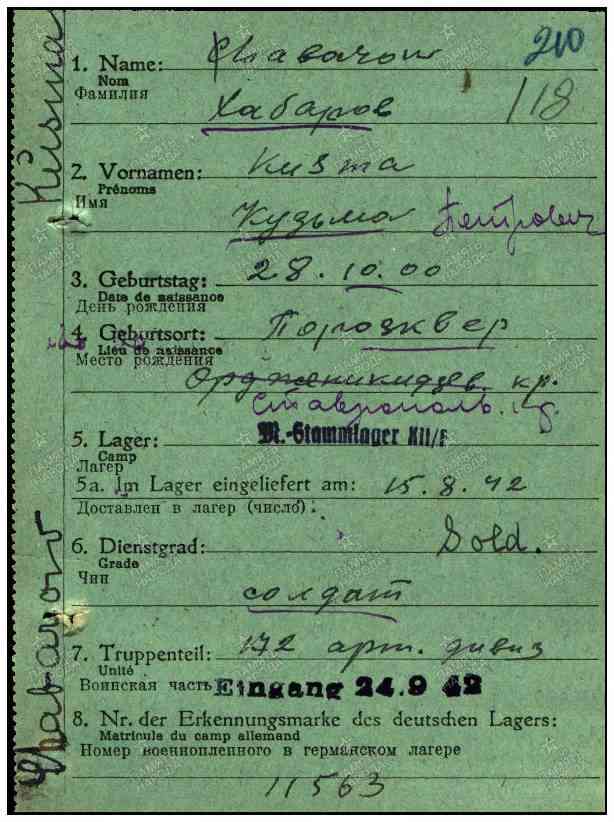 210
1. Name: Chabarow
Nom
Фамилия
Хабаров
118
2. Vornamen: Kusma
Prénoms
Имя
Кузьма Петрович
3. Geburtstag: 28.10.00
Date de naissance
День рождения
4. Geburtsort:
Lieu de naissance
Место рождения
Орджоникидзев. кр.
Ставрополь. кр.
5. Lager: M.-Stammlager XII/F
Camp
Лагер
5a. Im Lager eingeliefert am: 15.8.42
Доставлен в лагер (число):
6. Dienstgrad: Sold.
Grade
Чин
солдат
7. Truppenteil: 172 арт. дивиз
Unité
Воинская часть Eingang 24.9 42
8. Nr. der Erkennungsmarke des deutschen Lagers:
Matricule du camp allemand
Номер военнопленного в германском лагере
11563
Chabarow Kusma